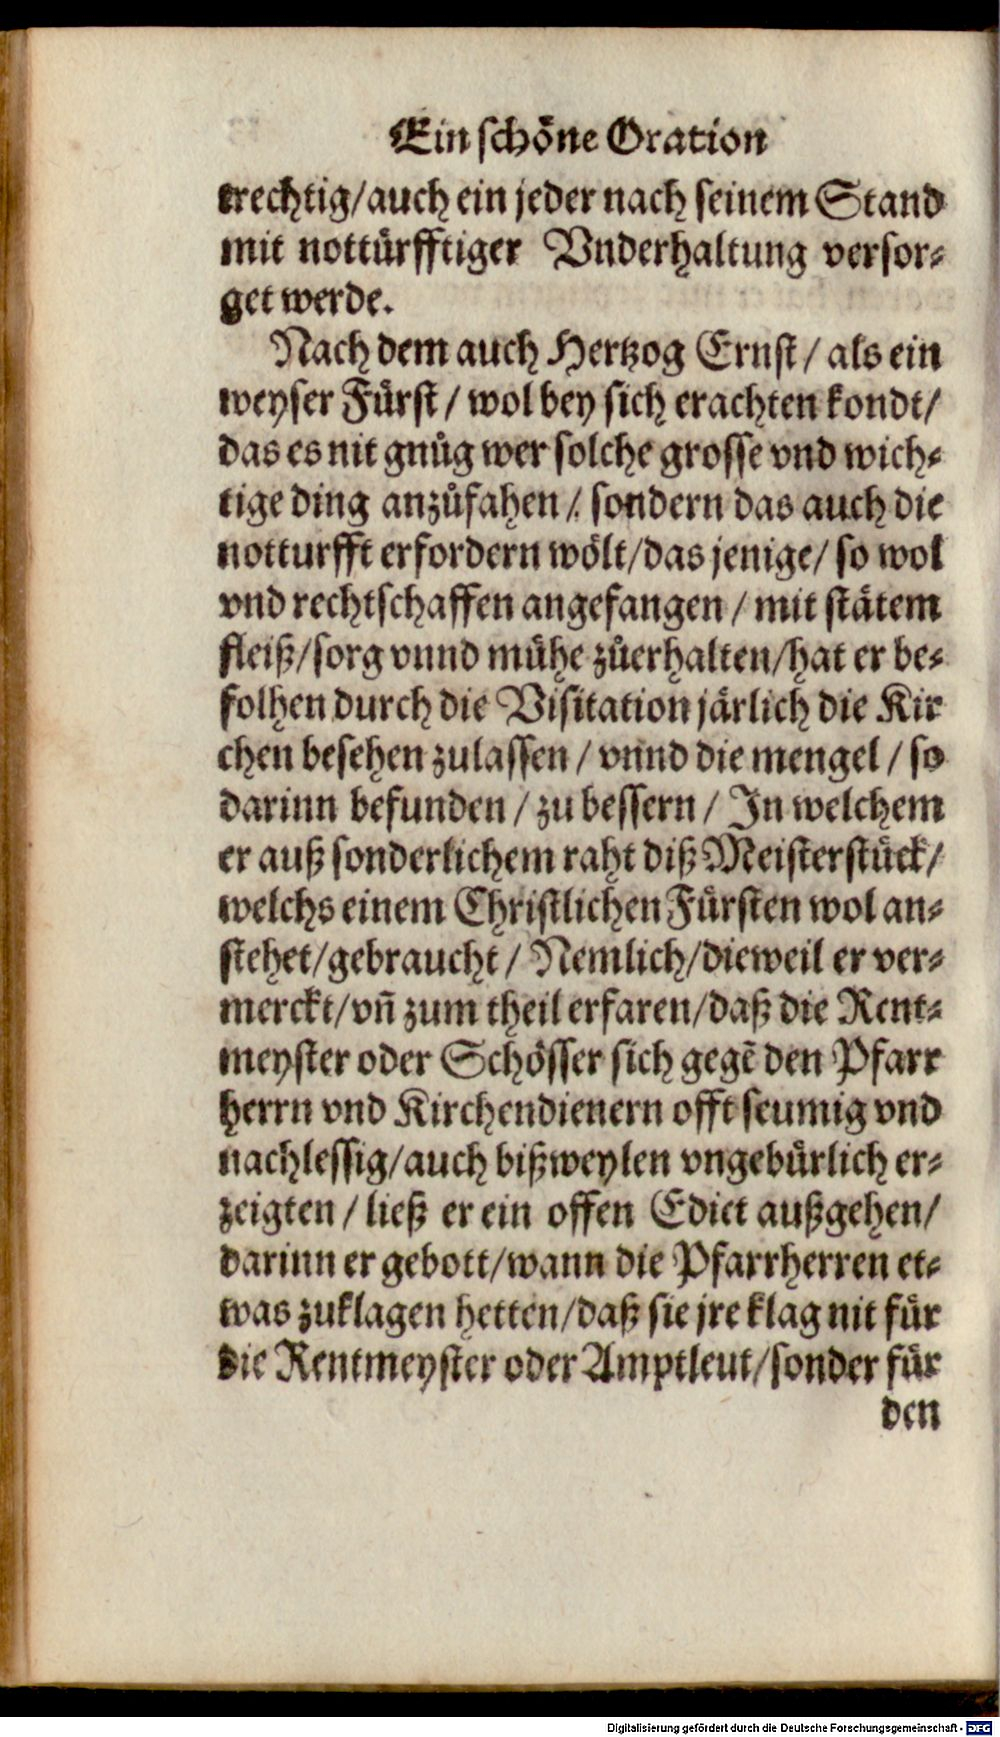 Ein schöne Oration
trechtig/auch ein jeder nach seinem Stand
mit nottürfftiger Vnderhaltung versor⸗
get werde.
Nach dem auch Hertzog Ernst/ als ein
weyser Fürst/ wol bey sich erachten kondt/
das es nit gnůg wer solche grosse vnd wich⸗
tige ding anzůfahen/ sondern das auch die
notturfft erfordern wölt/das jenige/ so wol
vnd rechtschaffen angefangen/ mit stätem
fleiß/sorg vnnd mühe zůerhalten/hat er be⸗
folhen durch die Visitation järlich die Kir
chen besehen zulassen/ vnnd die mengel/ so
darinn befunden/ zu bessern/ In welchem
er auß sonderlichem raht diß Meisterstück/
welchs einem Christlichen Fürsten wol an⸗
stehet/gebraucht/ Nemlich/dieweil er ver⸗
merckt/vñ zum theil erfaren/daß die Rent⸗
meyster oder Schösser sich gegẽ den Pfarr
herrn vnd Kirchendienern offt seumig vnd
nachlessig/auch bißweylen vngebürlich er⸗
zeigten/ ließ er ein offen Edict außgehen/
darinn er gebott/wann die Pfarrherren et⸗
was zuklagen hetten/daß sie jre klag nit für
die Rentmeyster oder Amptleut/sonder für
den
Digitalisierung gefördert durch die Deutsche Forschungsgemeinschaft - DFG